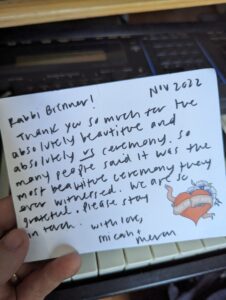 Nov 2022
Rabbi Brenner!
Thank you so much for the
absolutely beautiful and
absolutely us ceremony. So
many people said it was the
most beautiful ceremony they
ever witnessed. We are so
grateful. Please stay
in touch. With love,
micah +